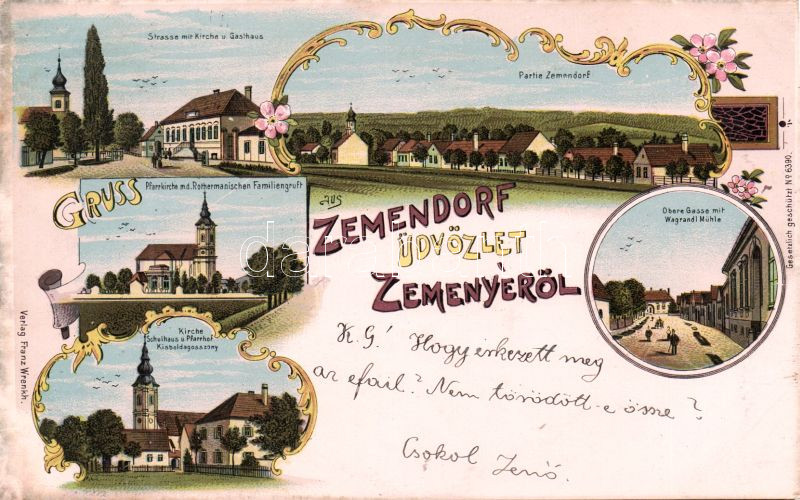 Strasse mit Kirche u. Gasthaus
Partie Zemendorf
Pfarrkirche m.d. Rothermanischen Familiengruft
GRUSS
AUS
ZEMENDORF
ÜDVÖZLET
ZEMENYÉRŐL
Obere Gasse mit
Wagrandl Mühle
Kirche
Schulhaus u. Pfarrhof
Kisboldogasszony
K. G! Hogy érkezett meg
az
Nem törődött-e össze?
Csókol Jenő.
Verlag Franz Wrenkh.
Gesetzlich geschützt No 6390.